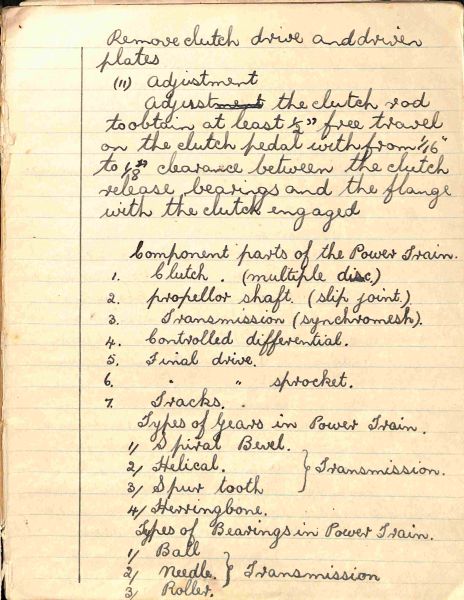 Remove clutch drive and driven
plates
(11) Adjustment
Adjustment the clutch rod
to obtain at least ½" free travel
on the clutch pedal with from 1/16"
to 1/8" clearance between the clutch
release bearings and the flange
with the clutch engaged
Component parts of the Power Train.
1. Clutch. (multiple disc.)
2. propellor shaft. (slip joint.)
3. Transmission (synchromesh).
4. Controlled differential.
5. Final drive.
6. " " sprocket.
7. Tracks.
Types of Gears in Power Train.
1/ Spiral Bevel.
2/ Helical. } Transmission.
3/ Spur tooth
4/ Herringbone.
Types of Bearings in Power Train.
1/ Ball
2/ Needle. } Transmission
3/ Roller.